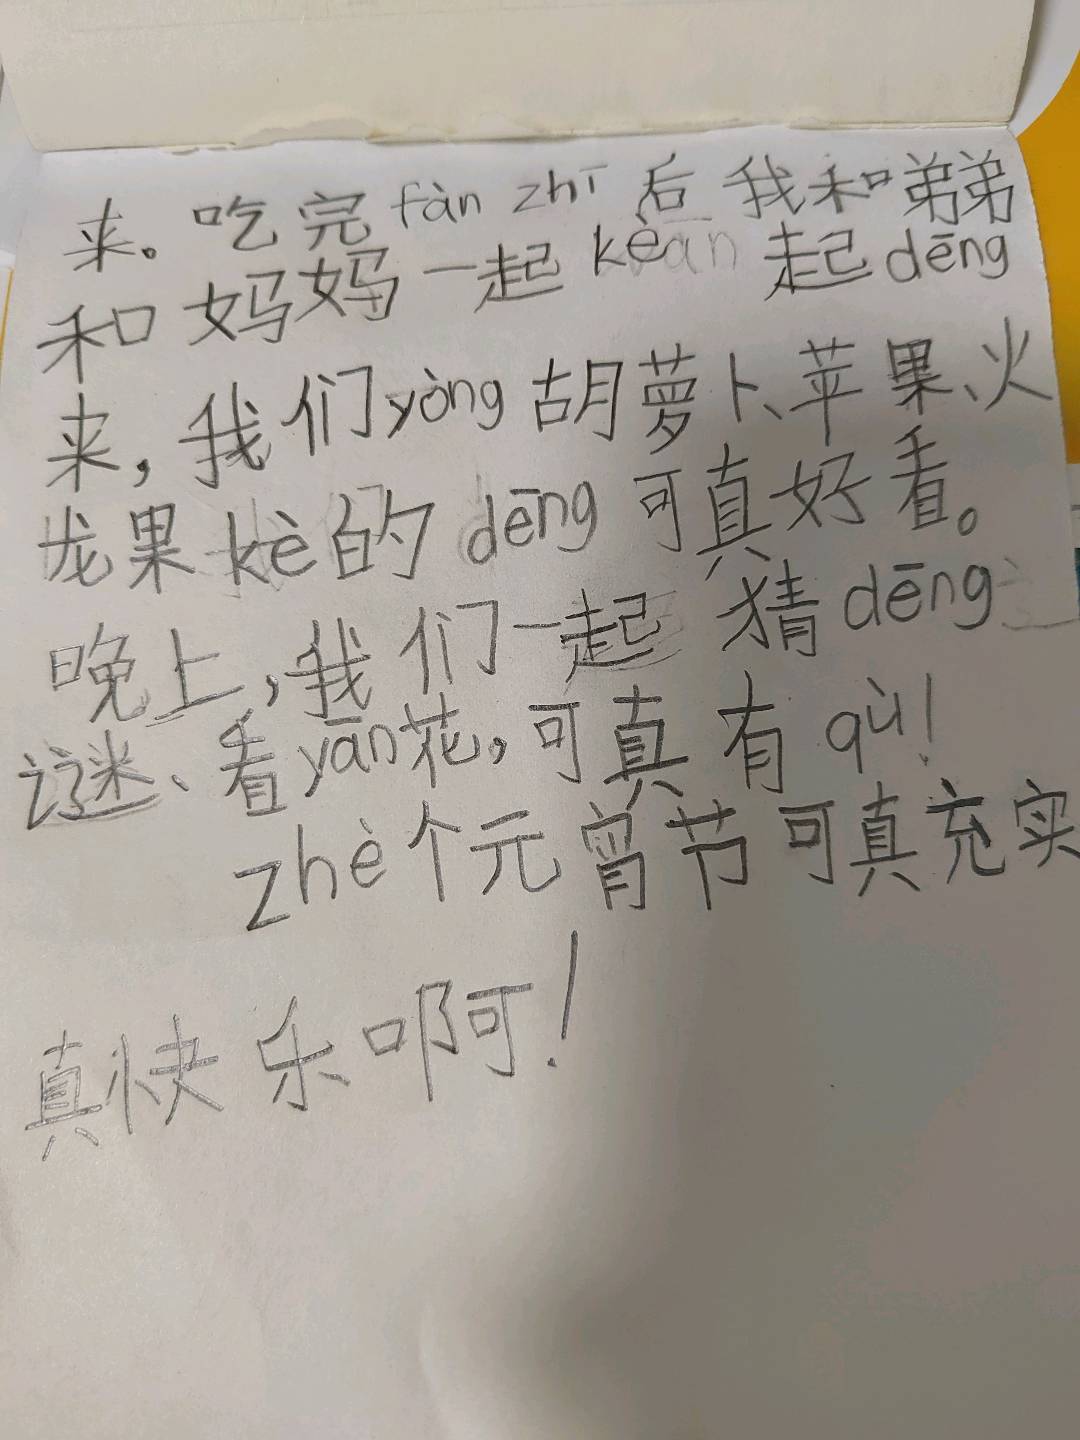 来。吃完fàn zhī后我和弟弟
和妈妈一起kè起dēng
来，我们yòng胡萝卜、苹果、火
龙果kè的dēng可真好看。
晚上，我们一起猜dēng
谜、看yān花，可真有qù！
zhè个元宵节可真充实
真快乐啊！